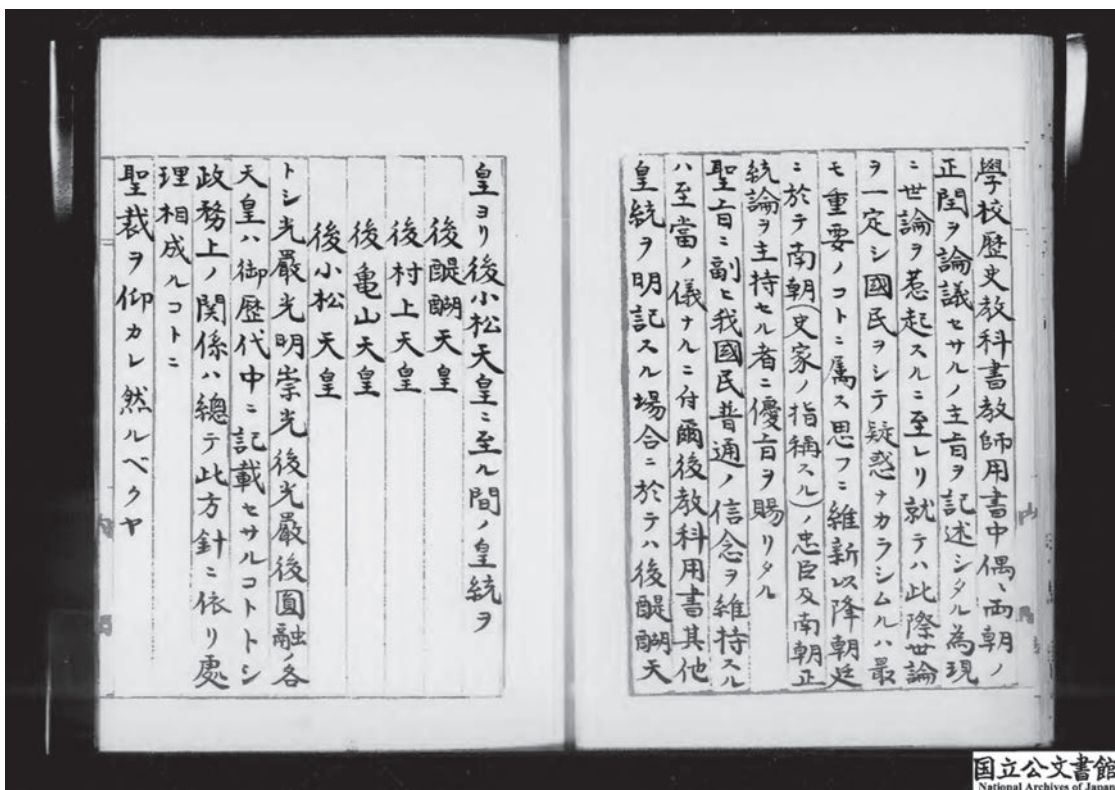 學校歷史教科書教師用書中偶、両朝ノ
正閏ヲ論議セサルノ主旨ヲ記述シタル為現
ニ世論ヲ惹起スルニ至レリ就テハ此際世論
ヲ一定シ國民ヲシテ疑惑ナカラシムルハ最
モ重要ノコトニ属ス思フニ維新以降朝廷
ニ於テ南朝(史家ノ指稱スル)ノ忠臣及南朝正
統論ヲ主持セル者ニ優旨ヲ賜リタル
聖旨ニ副ヒ我國民普通ノ信念ヲ維持スル
ハ至當ノ儀ナルニ付爾後教科用書其他
皇統ヲ明記スル場合ニ於テハ後醍醐天
皇ヨリ後小松天皇ニ至ル間ノ皇統ヲ
後醍醐天皇
後村上天皇
後亀山天皇
後小松天皇
トシ光嚴光明崇光後光嚴後圓融ノ各
天皇ハ御歷代中ニ記載セサルコトトシ
政務上ノ関係ハ總テ此方針ニ依リ處
理相成ルコトニ
聖裁ヲ仰カレ然ルベクヤ
国立公文書館
National Archives of Japan